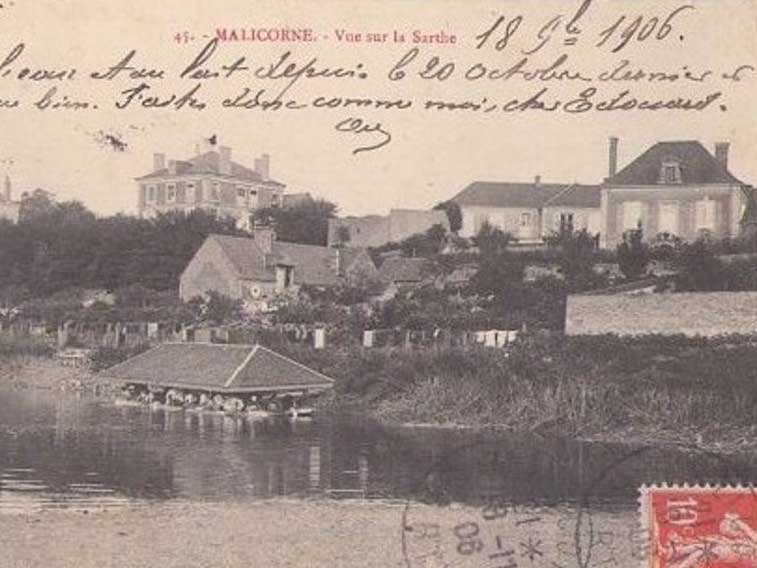 45. - MALICORNE. - Vue sur la Sarthe
18 9bre 1906.
au lait depuis le 20 octobre dernier et
bien. Faites donc comme moi, cher Edouard.
10
06